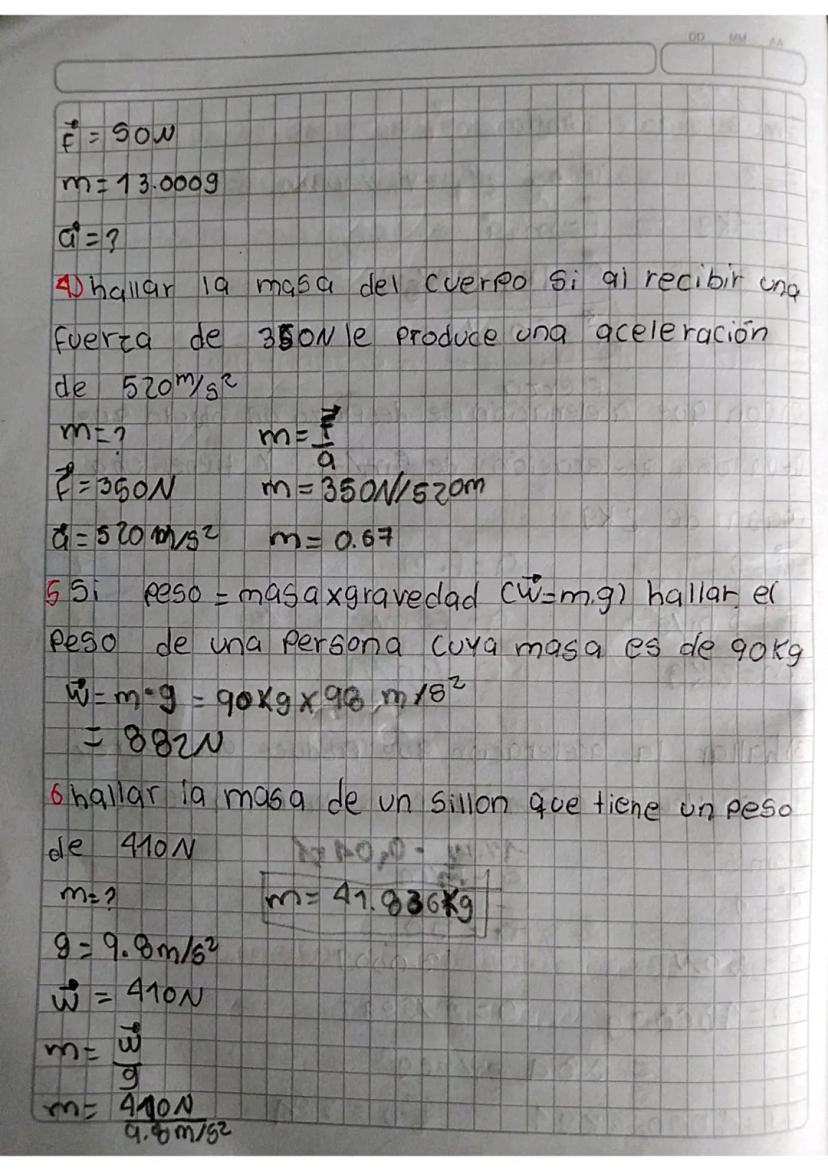 DD MM AA
F = 50N
m = 13.000g
a = ?
4) hallar la masa del cuerpo si al recibir una
fuerza de 350N le produce una aceleración
de 520m/s²
m = ? m = F/a
F = 350N m = 350N/520m
a = 520 m/s² m = 0.67
5 Si peso = masa x gravedad (w = m.g) hallar el
peso de una persona cuya masa es de 90kg
w = m • g = 90kg x 98 m/s²
= 882N
6 hallar la masa de un sillon que tiene un peso
de 410N
m = ? m = 41.836kg
g = 9.8m/s²
w = 410N
m = w/g
m = 410N/9.8m/s²